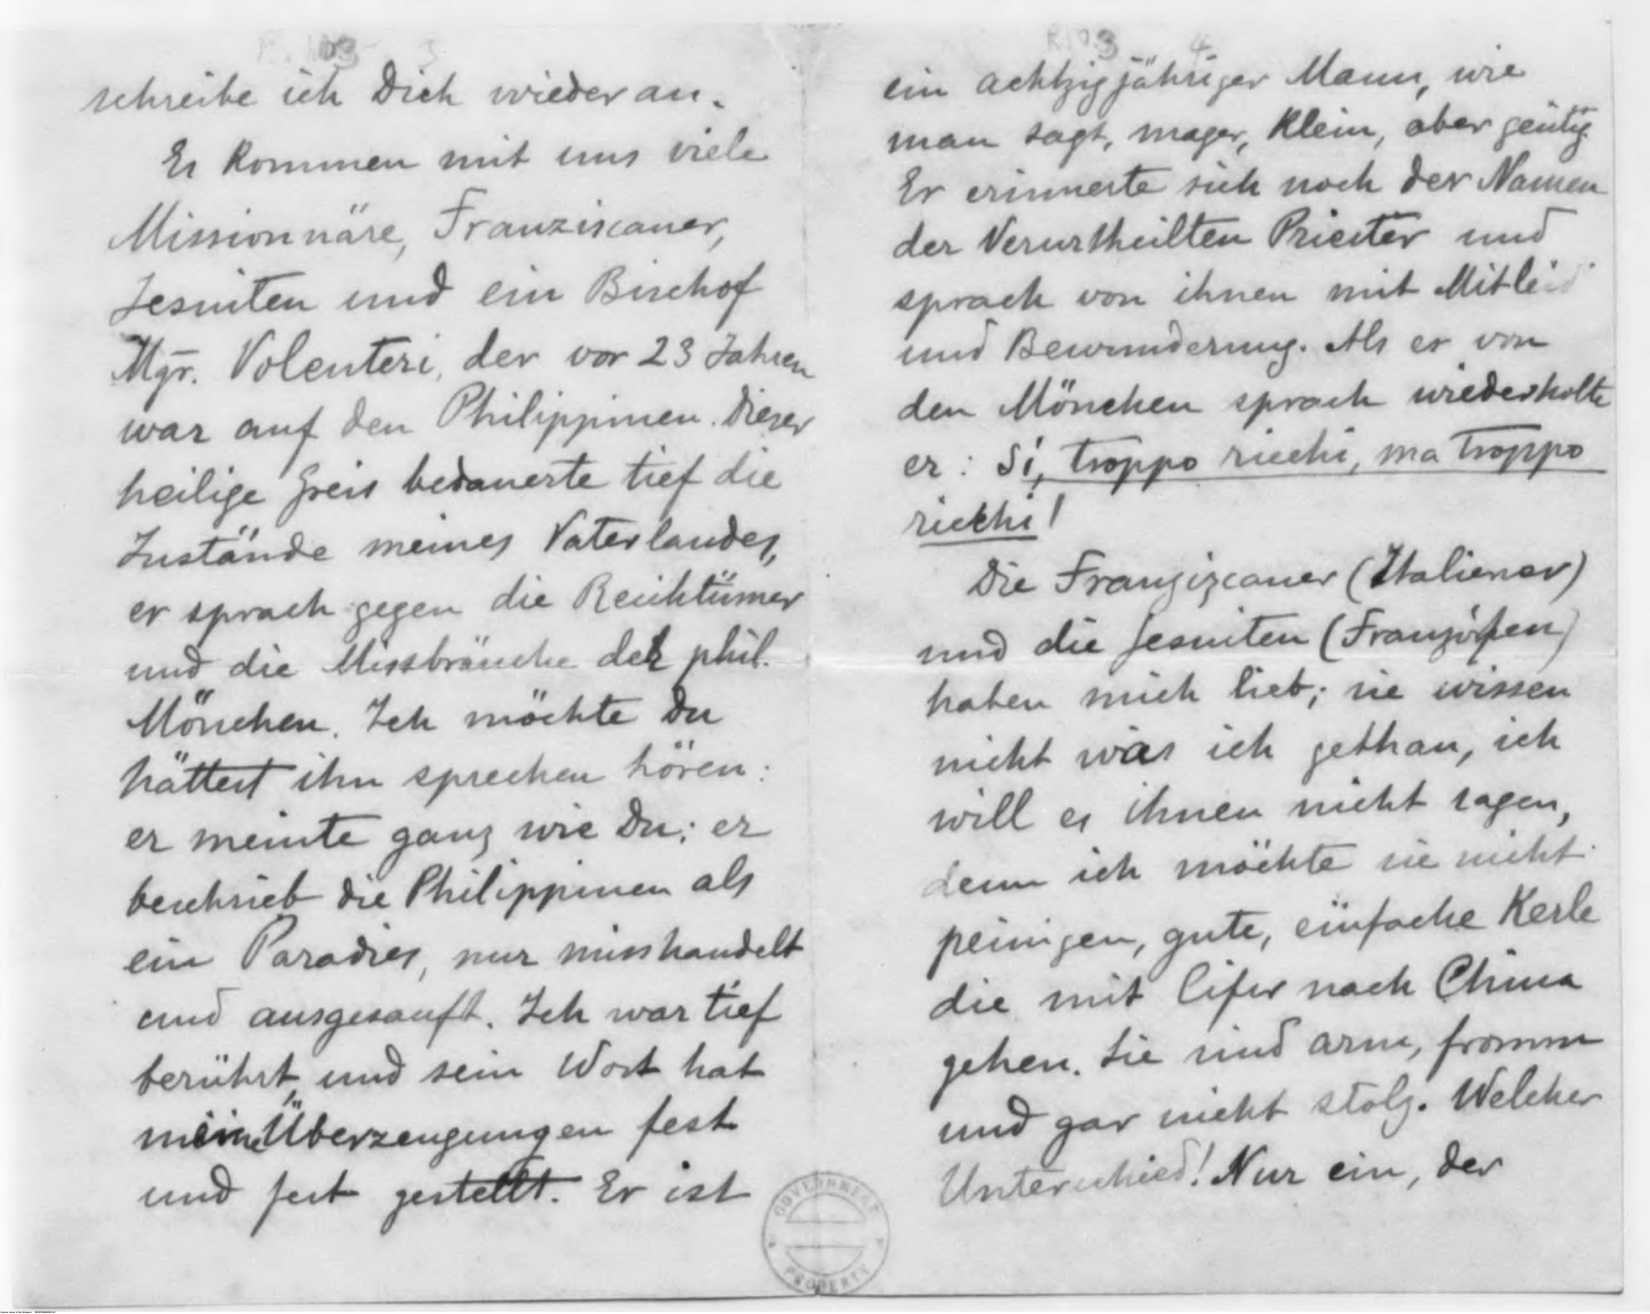 schreibe ich Dich wieder an.
Es kommen mit uns viele
Missionnäre, Franziscaner,
Jesuiten und ein Bischof
Mgr. Volenteri, der vor 23 Jahren
war auf den Philippinen. Dieser
heilige Greis bedauerte tief die
Zustände meines Vaterlandes,
er sprach gegen die Reichtümer
und die Missbräuche der phil.
Mönchen. Ich möchte Du
hättest ihn sprechen hören:
er meinte ganz wie Du; er
beschrieb die Philippinen als
ein Paradies, nur misshandelt
und ausgesauft. Ich war tief
berührt, und sein Wort hat
meine Überzeugungen fest
und fest gestellt. Er ist
R103 4
ein achtzigjähriger Mann, wie
man sagt, mager, klein, aber geistig.
Er erinnerte sich noch der Namen
der Verurtheilten Priester und
sprach von ihnen mit Mitleid
und Bewunderung. Als er von
den Mönchen sprach wiederholte
er: Si, troppo ricchi, ma troppo
ricchi!
Die Franziscaner (Italiener)
und die Jesuiten (Franzosen)
haben mich lieb; sie wissen
nicht was ich gethan, ich
will es ihnen nicht sagen,
denn ich möchte sie nicht
peinigen, gute, einfache Kerle
die mit Eifer nach China
gehen. Sie sind arm, fromm
und gar nicht stolz. Welcher
Unterschied! Nur ein, der
GOVERNMENT
PROPERTY